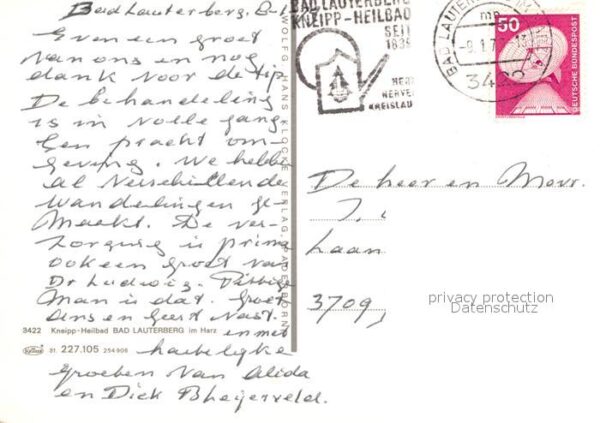 Bad Lauterberg. 8-1
Even een groet
van ons en nog
dank voor de tip
De behandeling
is in volle gang
Een pracht om-
geving. We hebbe
al verschillende
wandelingen ge-
maakt. De ver-
zorging is prima
ook een groet van
Dr Ludwig. Pittige
man is dat. Groet
Ans en Geert Vast.
en met
hartelijke
groeten van Alida
en Dick
3422 Kneipp-Heilbad BAD LAUTERBERG im Harz
31. 227.105 254 906
WOLFG. HANS KLOCKE VERLAG, PADERBORN
BAD LAUTERBERG
KNEIPP-HEILBAD
SEIT
1839
HERZ
NERVE
KREISLAU
BAD LAUTERBERG IM
mn
-9.1.7
3422
50
DEUTSCHE BUNDESPOST
De heer en Mevr.
J.
Laan
3709,
privacy protection
Datenschutz